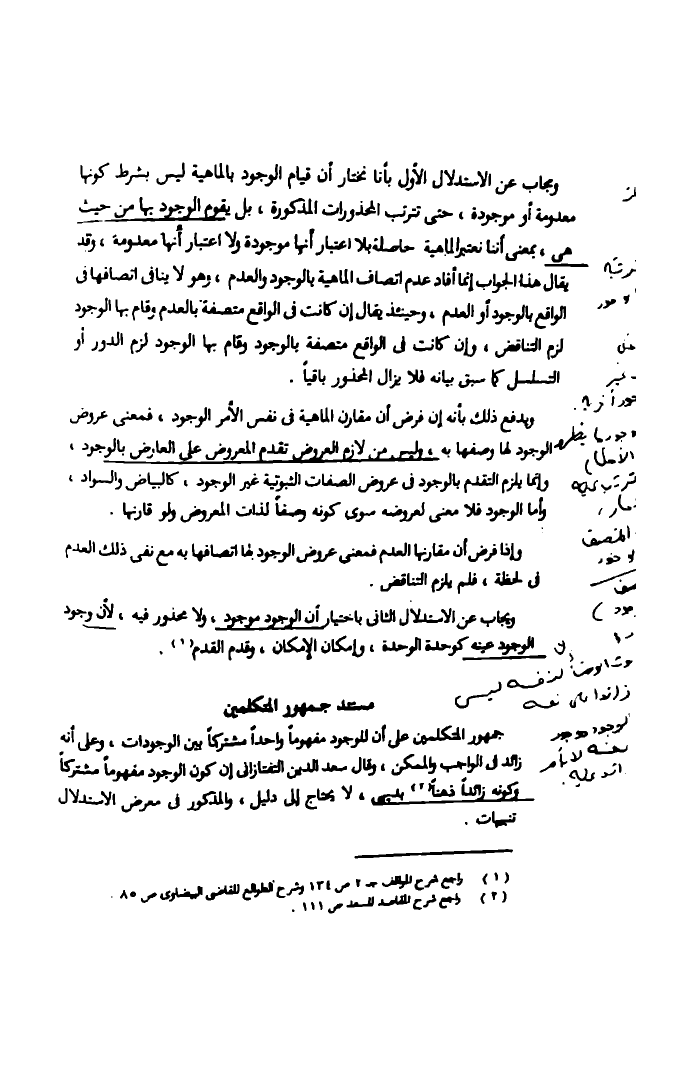 ويجاب عن الاستدلال الأول بأنا نختار أن قيام الوجود بالماهية ليس بشرط كونها
معدومة أو موجودة ، حتى تترتب المحذورات المذكورة ، بل يقوم الوجود بها من حيث
هى ، بمعنى أننا نعتبر الماهية حاصلة بلا اعتبار أنها موجودة ولا اعتبار أنها معدومة ، وقد
يقال هذا الجواب إنما أفاد عدم اتصاف الماهية بالوجود والعدم ، وهو لا ينافى اتصافها فى
الواقع بالوجود أو العدم ، وحينئذ يقال إن كانت فى الواقع متصفة بالعدم وقام بها الوجود
لزم التناقض ، وإن كانت فى الواقع متصفة بالوجود وقام بها الوجود لزم الدور أو
التسلسل كما سبق بيانه فلا يزال المحذور باقياً .
ويدفع ذلك بأنه إن فرض أن مقارن الماهية فى نفس الأمر الوجود ، فمعنى عروض
الوجود لها وصفها به ، وليس من لازم العروض تقدم المعروض على العارض بالوجود ،
وإنما يلزم التقدم بالوجود فى عروض الصفات الثبوتية غير الوجود ، كالبياض والسواد ،
وأما الوجود فلا معنى لعروضه سوى كونه وصفاً لذات المعروض ولو قارنها .
وإذا فرض أن مقارنها العدم فمعنى عروض الوجود لها اتصافها به مع نفى ذلك العدم
فى لحظة ، فلم يلزم التناقض .
ويجاب عن الاستدلال الثانى باختيار أن الوجود موجود ، ولا محذور فيه ، لأن وجود
الوجود عينه كوحدة الوحدة ، وإمكان الإمكان ، وقدم القدم(١) .
لنفسه ليس
زائدا على نفسه
مستند جمهور المتكلمين
جمهور المتكلمين على أن للوجود مفهوماً واحداً مشتركاً بين الوجودات ، وعلى أنه
زائد فى الواجب والممكن ، وقال سعد الدين التفتازانى إن كون الوجود مفهوماً مشتركاً
وكونه زائداً ذهناً(٢) بديهى ، لا يحتاج إلى دليل ، والمذكور فى معرض الاستدلال
تنبيهات .
(١) راجع شرح المواقف جـ ٢ ص ١٣٤ وشرح الطوالع للقاضى البيضاوى ص ٨٥ .
(٢) راجع شرح المقاصد للسعد ص ١١١ .